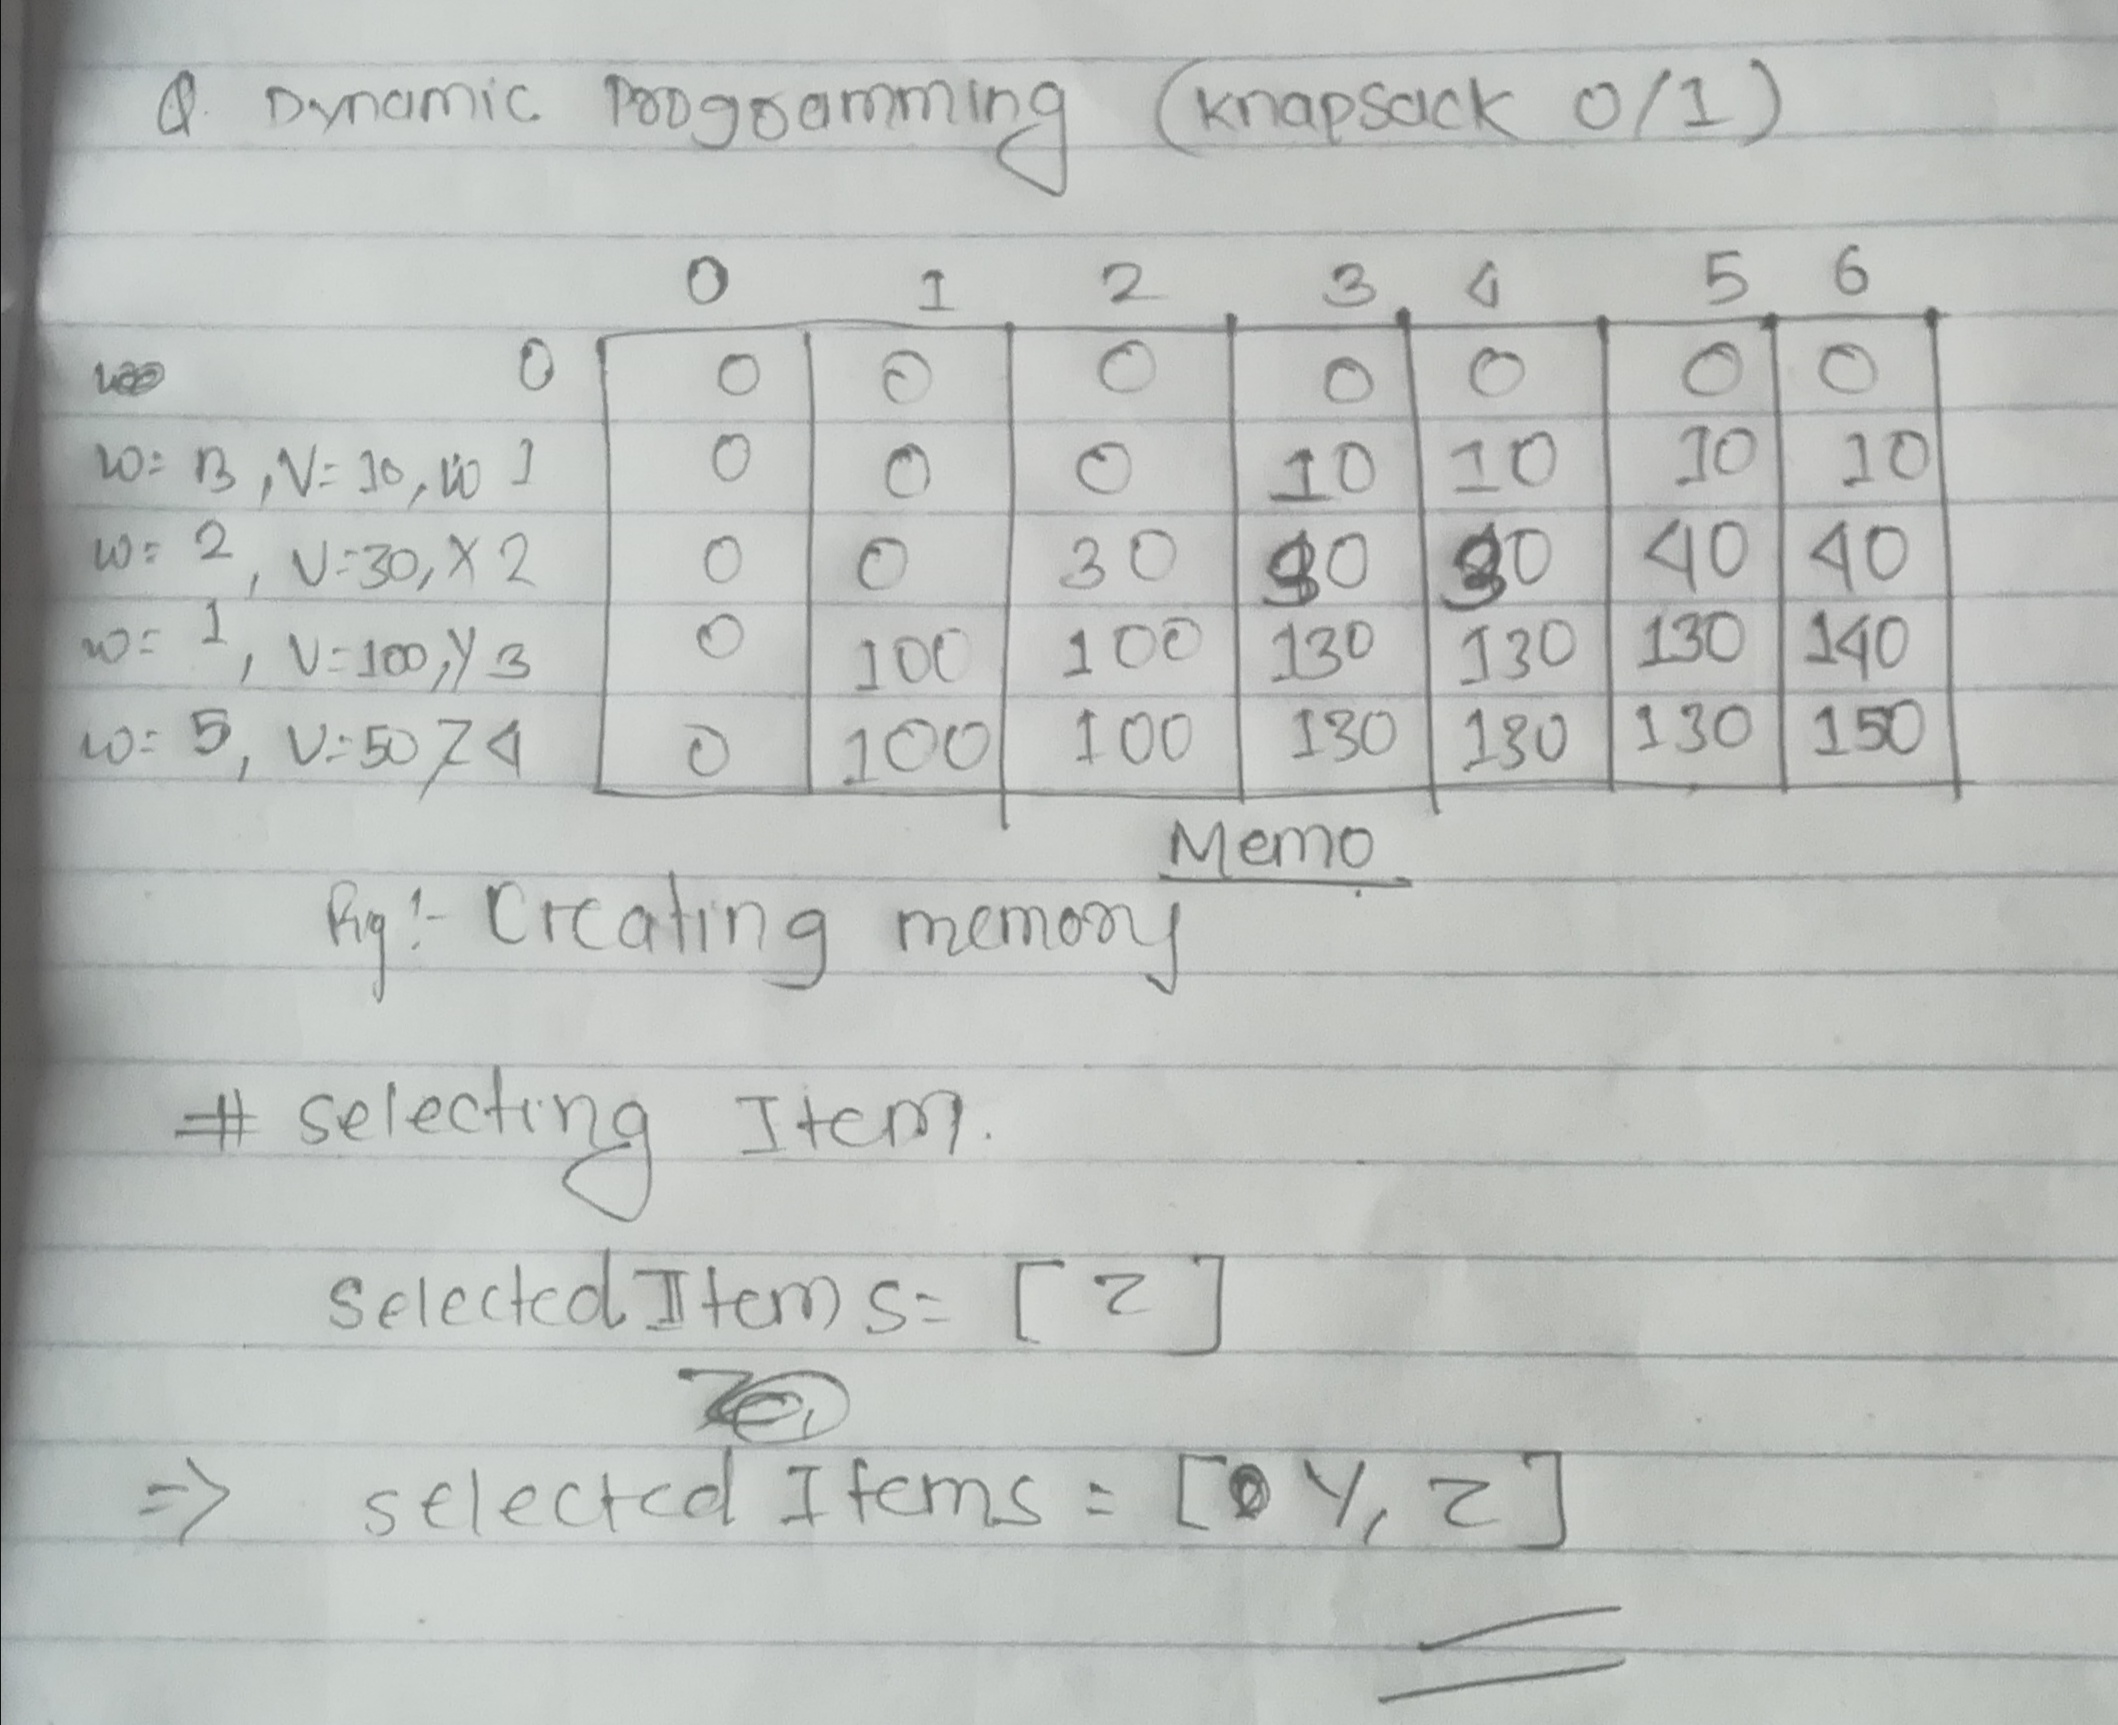 Q. Dynamic Programming (Knapsack 0/1)
0 1 2 3 4 5 6
0 0 0 0 0 0 0 0
w= 3, V= 10, W 1 0 0 0 10 10 10 10
w= 2, V=30, X 2 0 0 30 30 30 40 40
w= 1, V=100, Y 3 0 100 100 130 130 130 140
w= 5, V=50 Z 4 0 100 100 130 130 130 150
Memo
Fig:- Creating memory
# selecting Item.
Selected Items= [Z]
=> selected Items = [Y, Z]